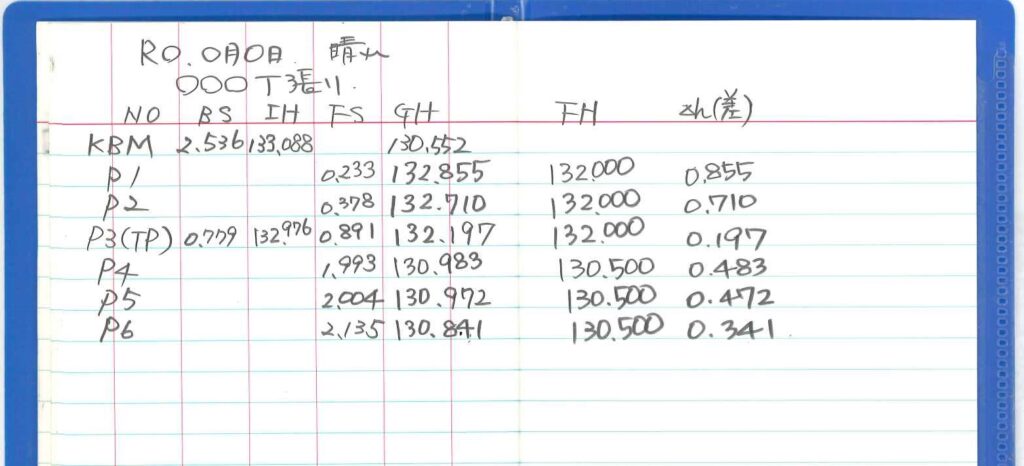 R〇.〇月〇日 晴れ
〇〇〇丁張り.
NO BS IH FS GH FH Δh(差)
KBM 2.536 133.088 130.552
P1 0.233 132.855 132.000 0.855
P2 0.378 132.710 132.000 0.710
P3(TP) 0.779 132.976 0.891 132.197 132.000 0.197
P4 1.993 130.983 130.500 0.483
P5 2.004 130.972 130.500 0.472
P6 2.135 130.841 130.500 0.341